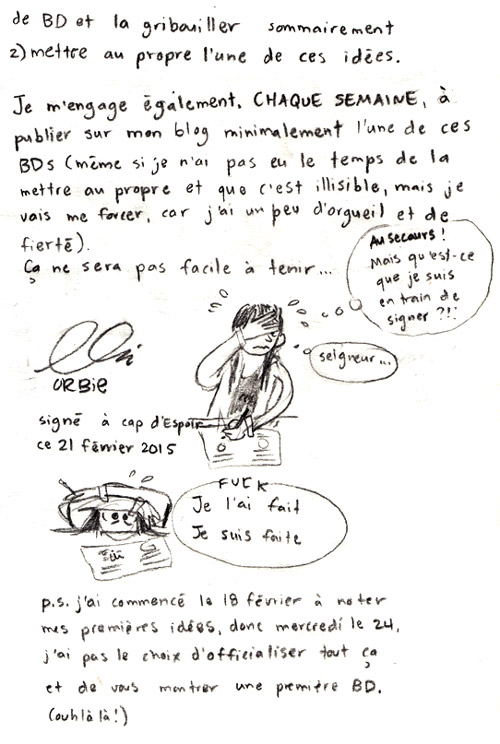 de BD et la gribouiller sommairement
2) mettre au propre l'une de ces idées.
Je m'engage également, CHAQUE SEMAINE, à
publier sur mon blog minimalement l'une de ces
BDs (même si je n'ai pas eu le temps de la
mettre au propre et que c'est illisible, mais je
vais me forcer, car j'ai un peu d'orgueil et de
fierté).
Ça ne sera pas facile à tenir...
Au secours!
Mais qu'est-ce
que je suis
en train de
signer ?!!
seigneur...
ORBie
signé à cap d'Espoir
ce 21 février 2015
FUCK
Je l'ai fait
Je suis faite
p.s. j'ai commencé le 18 février à noter
mes premières idées, donc mercredi le 24,
j'ai pas le choix d'officialiser tout ça
et de vous montrer une première BD.
(ouh là là!)